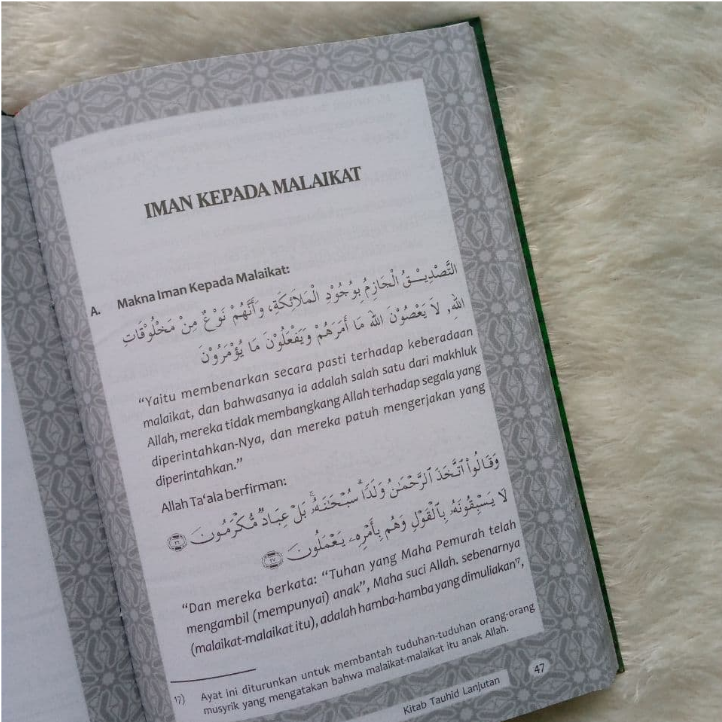 IMAN KEPADA MALAIKAT
A. Makna Iman Kepada Malaikat:
التَّصْدِيْقُ الْجَازِمُ بِوُجُوْدِ الْمَلَائِكَةِ، وَأَنَّهُمْ نَوْعٌ مِنْ مَخْلُوْقَاتِ
اللهِ، لَا يَعْصُوْنَ اللهَ مَا أَمَرَهُمْ وَيَفْعَلُوْنَ مَا يُؤْمَرُوْنَ
“Yaitu membenarkan secara pasti terhadap keberadaan
malaikat, dan bahwasanya ia adalah salah satu dari makhluk
Allah, mereka tidak membangkang Allah terhadap segala yang
diperintahkan-Nya, dan mereka patuh mengerjakan yang
diperintahkan.”
Allah Ta‘ala berfirman:
وَقَالُوا۟ ٱتَّخَذَ ٱلرَّحْمَـٰنُ وَلَدًا ۗ سُبْحَـٰنَهُۥ ۚ بَلْ عِبَادٌ مُّكْرَمُونَ ﴿٢٦﴾
لَا يَسْبِقُونَهُۥ بِٱلْقَوْلِ وَهُم بِأَمْرِهِۦ يَعْمَلُونَ ﴿٢٧﴾
“Dan mereka berkata: “Tuhan yang Maha Pemurah telah
mengambil (mempunyai) anak”, Maha suci Allah. sebenarnya
(malaikat-malaikat itu), adalah hamba-hamba yang dimuliakan¹⁷,
17) Ayat ini diturunkan untuk membantah tuduhan-tuduhan orang-orang
musyrik yang mengatakan bahwa malaikat-malaikat itu anak Allah.
Kitab Tauhid Lanjutan 47